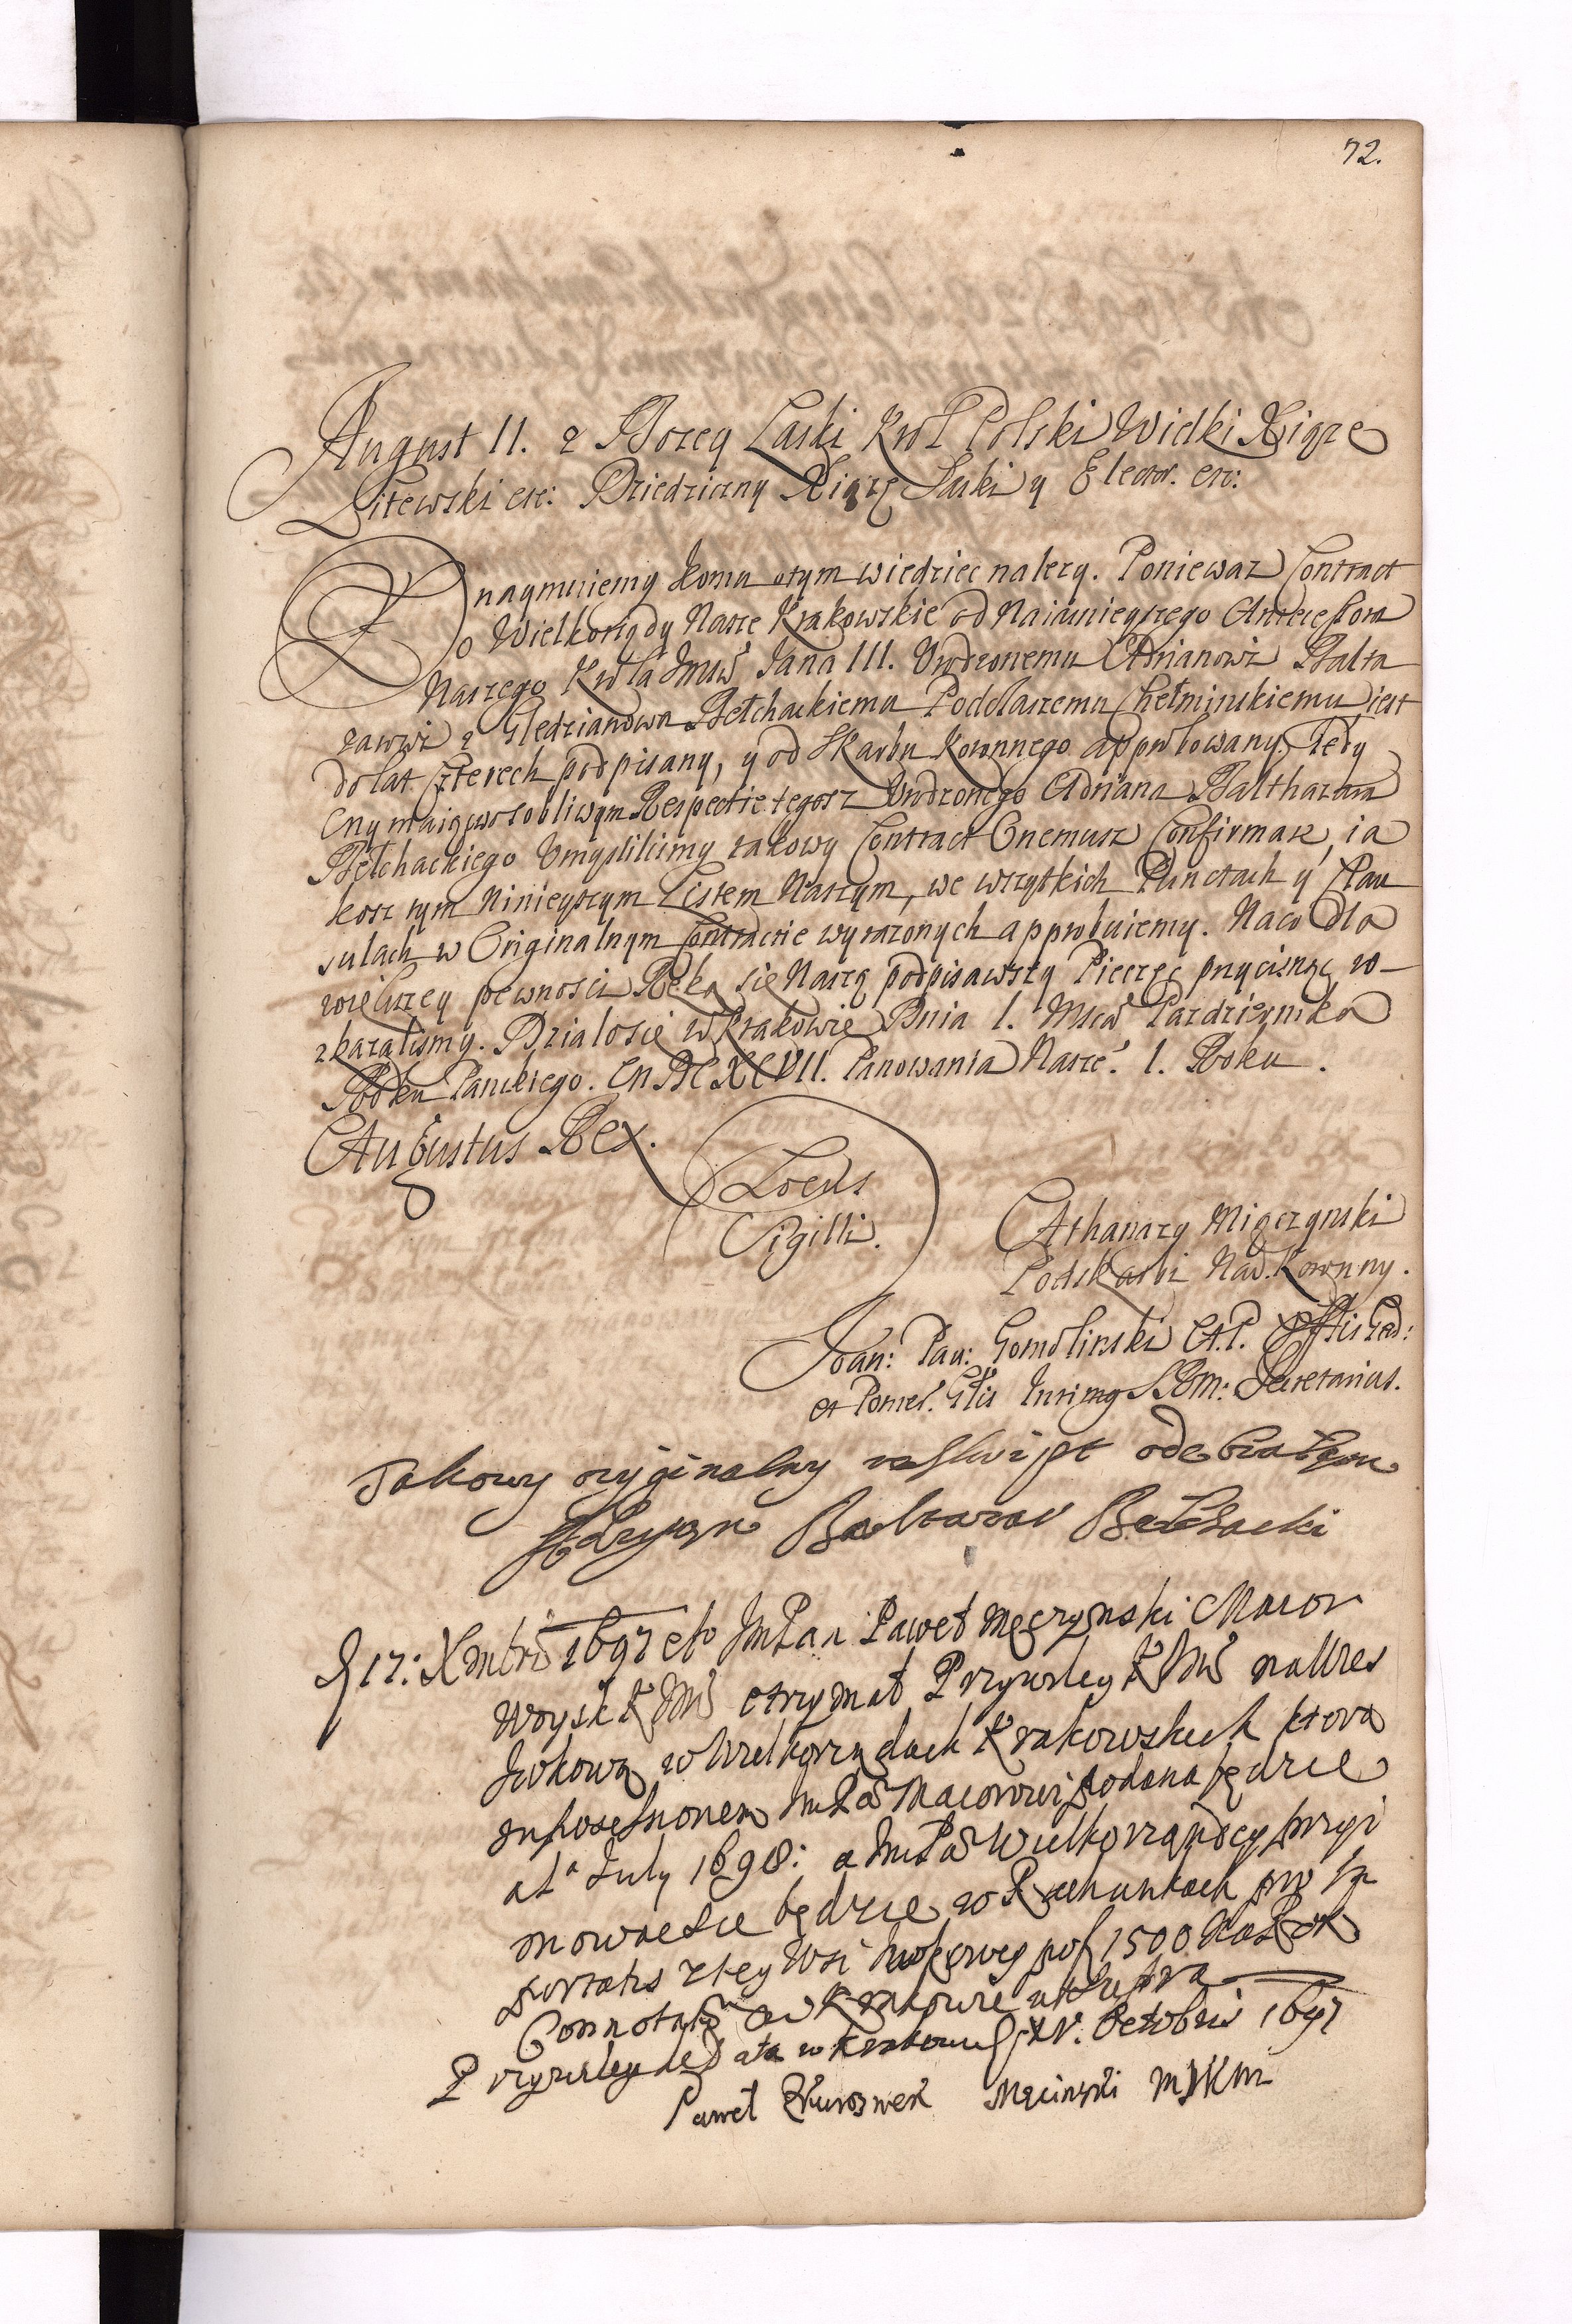 72.
August II. z Bozey Łaski Krol Polski Wielki Xiąze
Litewski etc: Dziedziczny Xiąze Saski y Elector. etc:
Znaymuiemy komu otym wiedziec nalezy. Poniewaz Contract
o Wielkorządy Nasze Krakowskie od Naiasnieyszego Antecessora
Naszego Krola Jmsci Jana III. Urodzonemu Adrianowi Balta
zarowi z Gledzianowa Bełchackiemu Podczaszemu Chełminskiemu iest
do lat czterech podpisany, y od Skarbu Koronnego approbowany. Tedy
My maiąc w osobliwym Respectie tegosz Urodzonego Adriana Balthazara
Bełchackiego Umyslilismy takowy Contract Onemusz Confirmare, ia
kosz tym Ninieyszym Listem Naszym, we wszytkich Punctach y Clau
sulach w Originalnym Contracie wyrazonych approbuiemy. Na co dla
wiekszey pewnosci Ręką się Naszą podpisawszy Pieczęc przycisnąc ro-
zkazalismy. Działo się w Krakowie Dnia 1. Msca Pazdziernika
Roku Panskiego. MDCXCVII. Panowania Nasze. I. Roku.
Augustus Rex.
Locus
Sigilli.
Athanazy Miączynski
Podskarbi Nad. Koronny.
Joan: Pau: Gomolinski
Secretarius.
Takowy oryginalny odebrałem
Adryan Baltazar Bełchacki
D 17: Xmbris 1697 JmPan Paweł Męczynski Maior
Woysk KJMs otrzymał Przywiley KJMs na Wies
w Wielkorządach Krakowskich ktora
JmPa Maiorowi podana będzie
a 1a July 1698: a JmPa Wielkorządcy przyi
mowac sie będzie w Rachunkach pro
z tey Wsi po f 1500 na Rok
w Krakowie ut supra
Przywiley w Krakowie XV. Octobris 1697
Paweł Męcinski